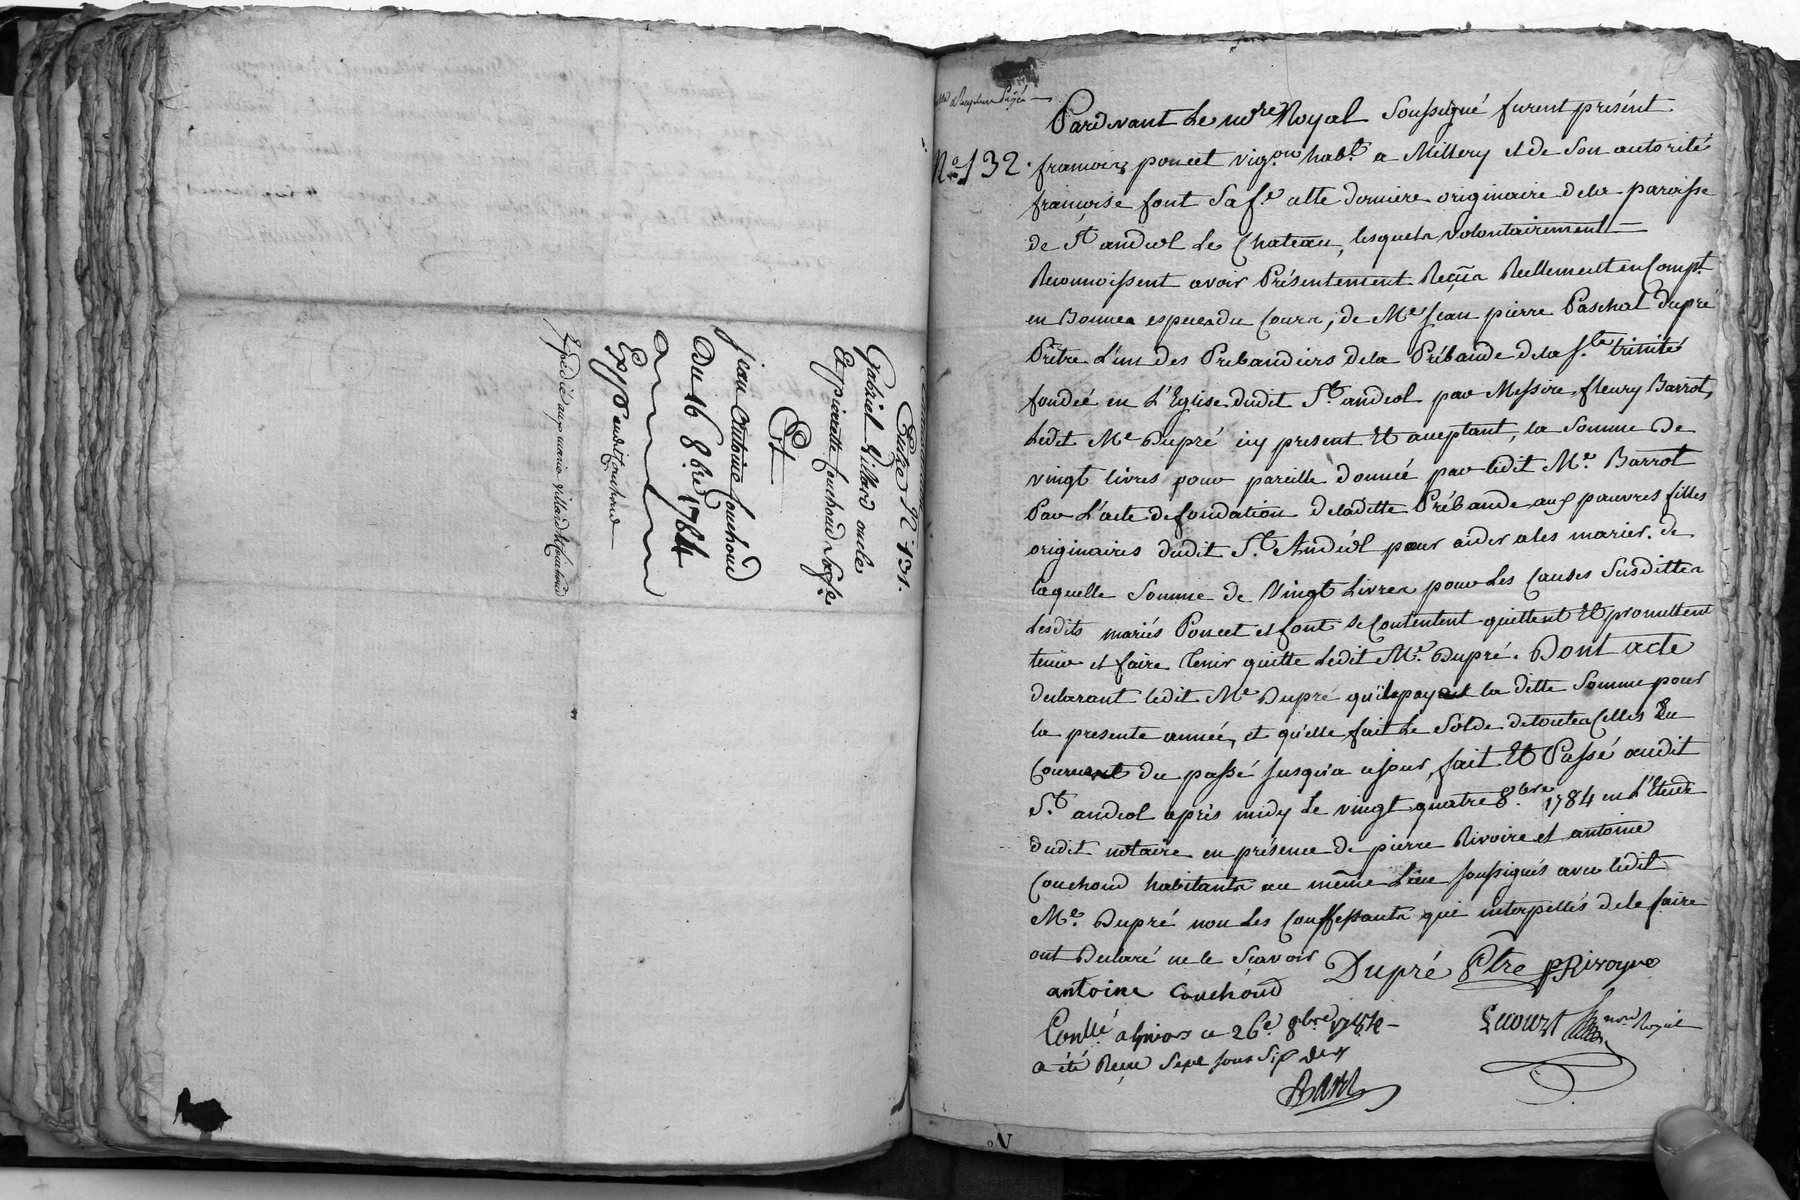 Entre N 131.
Gabriel Villard oncle
Et pierrette couchoud Sa fe
Et
jean Antoine couchoud
Du 16 8bre 1784
Expp Daudit couchoud
Expédié aux mariés villard & Couchoud
Pardevant Le nore Royal Soussigné furent présent
No 132. francois poncet vigon habt a Millery et de Son autorité
francoise font Sa fe cette derniere originaire dela paroisse
de St andeol Le Chateau, lesquels volontairement
Reconnoissent avoir Présentement Reçus Reellement en Compt
en Bonnes especes du Cours, de Me Jean pierre Paschal dupré
Prêtre L'un des Prebandiers dela Prébande dela Ste trinité
fondée en L'Eglise dudit St andeol par Messire fleury Barrot,
Ledit Me Dupré icy present Et acceptant, la Somme De
vingt livres pour pareille donnée par ledit Me Barrot
Par L'acte de fondation deladitte Prébande aux pauvres filles
originaires dudit St Andéol pour aider a les marier. de
laquelle Somme de Vingt Livres pour Les Causes Susdittes
Lesdits mariés Poncet et font Se Contentent quittent Et promettent
tenir et faire tenir quitte Ledit Me Dupré. Dont acte
declarant ledit Me Dupré qu'il paye la ditte Somme pour
la presente année, et qu'elle fait Le Solde detoutes Celles Du
Courant du passé Jusqu'a ce jour, fait Et Passé audit
St andeol après midy Le vingt quatre 8bre 1784 en L'Etude
dudit notaire en présence de pierre Rivoire et antoine
Couchoud habitants au même Lieu soussignés avec ledit
Me Dupré non Les Confessants qui interpellés de le faire
ont Déclaré ne le Scavoir Dupré Ptre P Rivoyre
antoine couchoud
Conllé a givors ce 26e 8bre 1784
Lecourt nore Royal
a été Reçu Sept sous Six ders